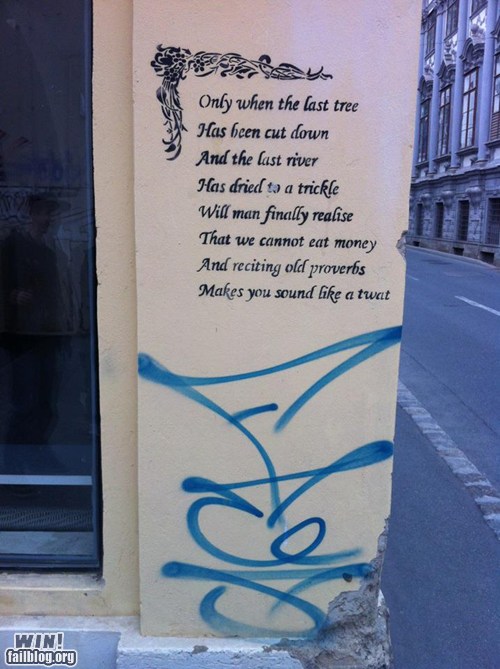 Only when the last tree
Has been cut down
And the last river
Has dried to a trickle
Will man finally realise
That we cannot eat money
And reciting old proverbs
Makes you sound like a twat
WIN!
failblog.org